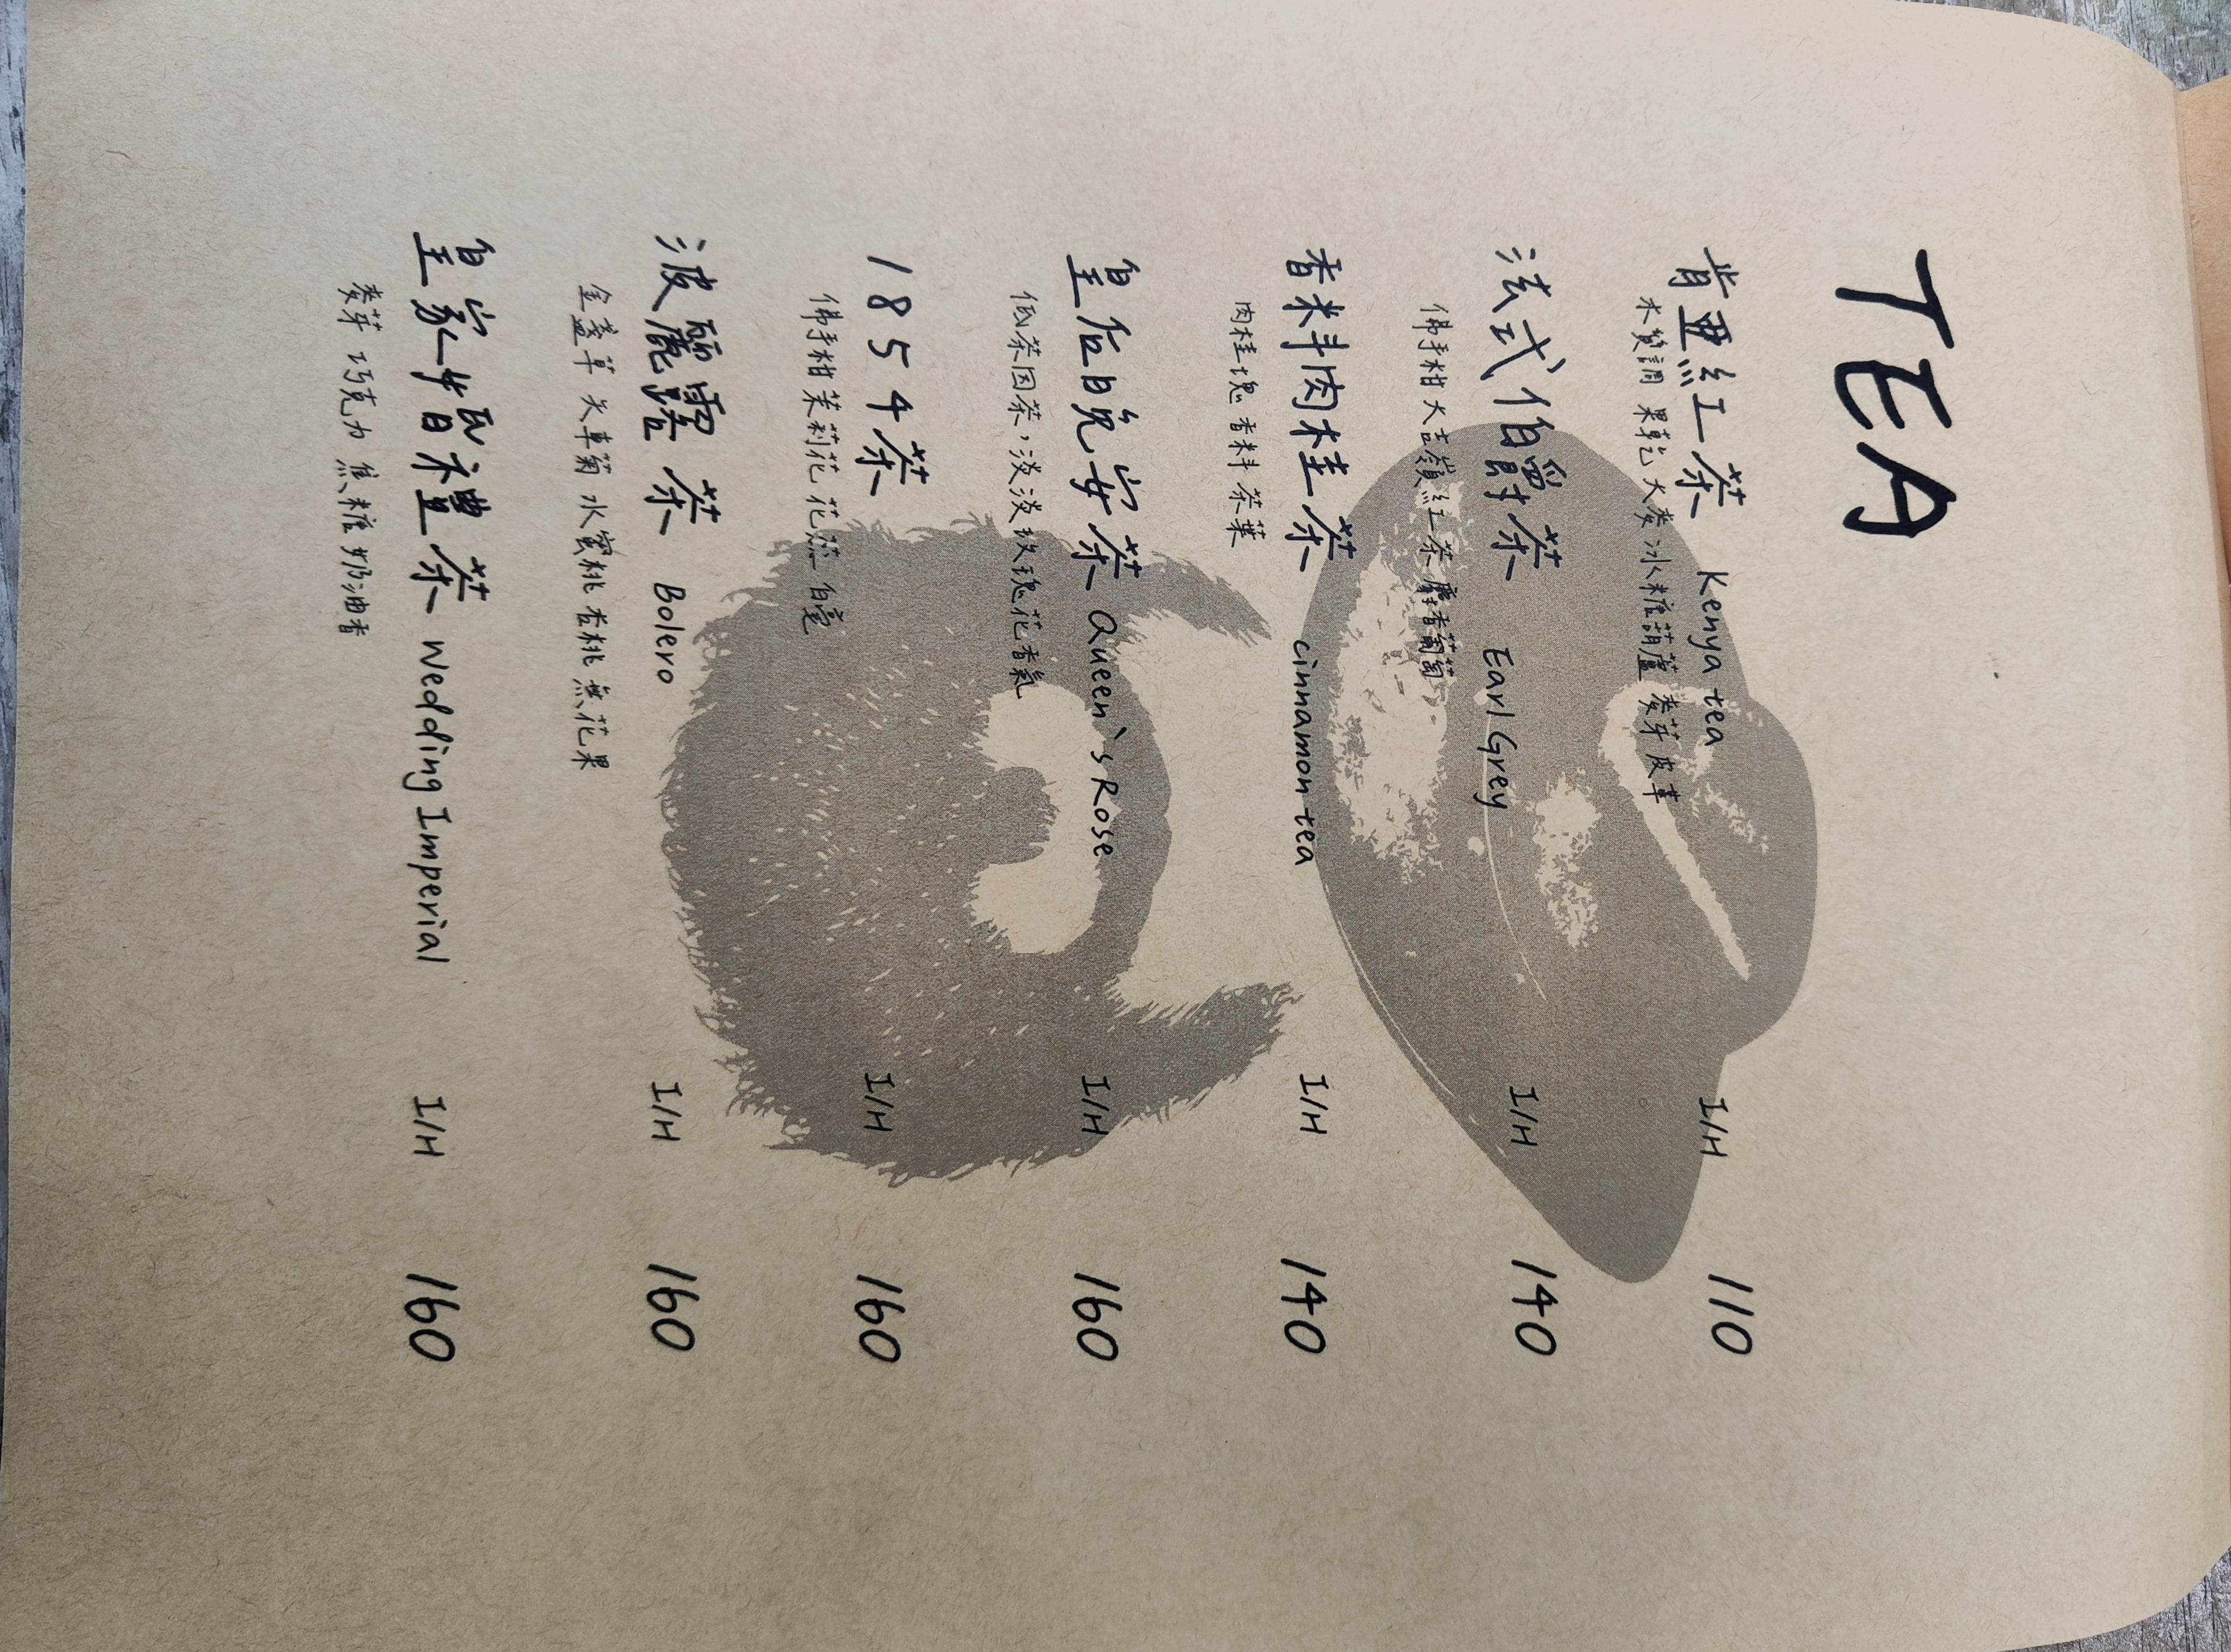 TEA
肯亞紅茶 Kenya tea I/H 110
木質調 果乾 大麥 冰糖葫蘆 麥芽 皮革
法式伯爵茶 Earl Grey I/H 140
佛手柑 大吉嶺紅茶 麝香葡萄
香料肉桂茶 cinnamon tea I/H 140
肉桂塊 香料 茶葉
皇后晚安茶 Queen's Rose I/H 160
低茶因茶，淡淡玫瑰花香氣
1854茶 I/H 160
佛手柑 茉莉花 花蕊 白毫
波麗露茶 Bolero I/H 160
金盞草 矢車菊 水蜜桃 杏桃 無花果
皇家婚禮茶 Wedding Imperial I/H 160
麥芽 巧克力 焦糖 奶油香